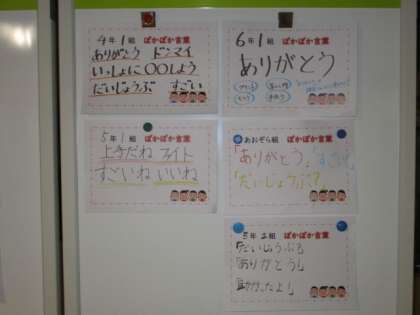 4年1組 ぽかぽか言葉
ありがとう ドンマイ
いっしょに〇〇しよう
だいじょうぶ すごい
6年1組 ぽかぽか言葉
ありがとう
5年1組 ぽかぽか言葉
上手だね ファイト
すごいね いいね
あおぞら組 ぽかぽか言葉
「ありがとう」「すごい」
「だいじょうぶ?」
5年2組 ぽかぽか言葉
「だいじょうぶ?」
「ありがとう」
「助かったよ!」